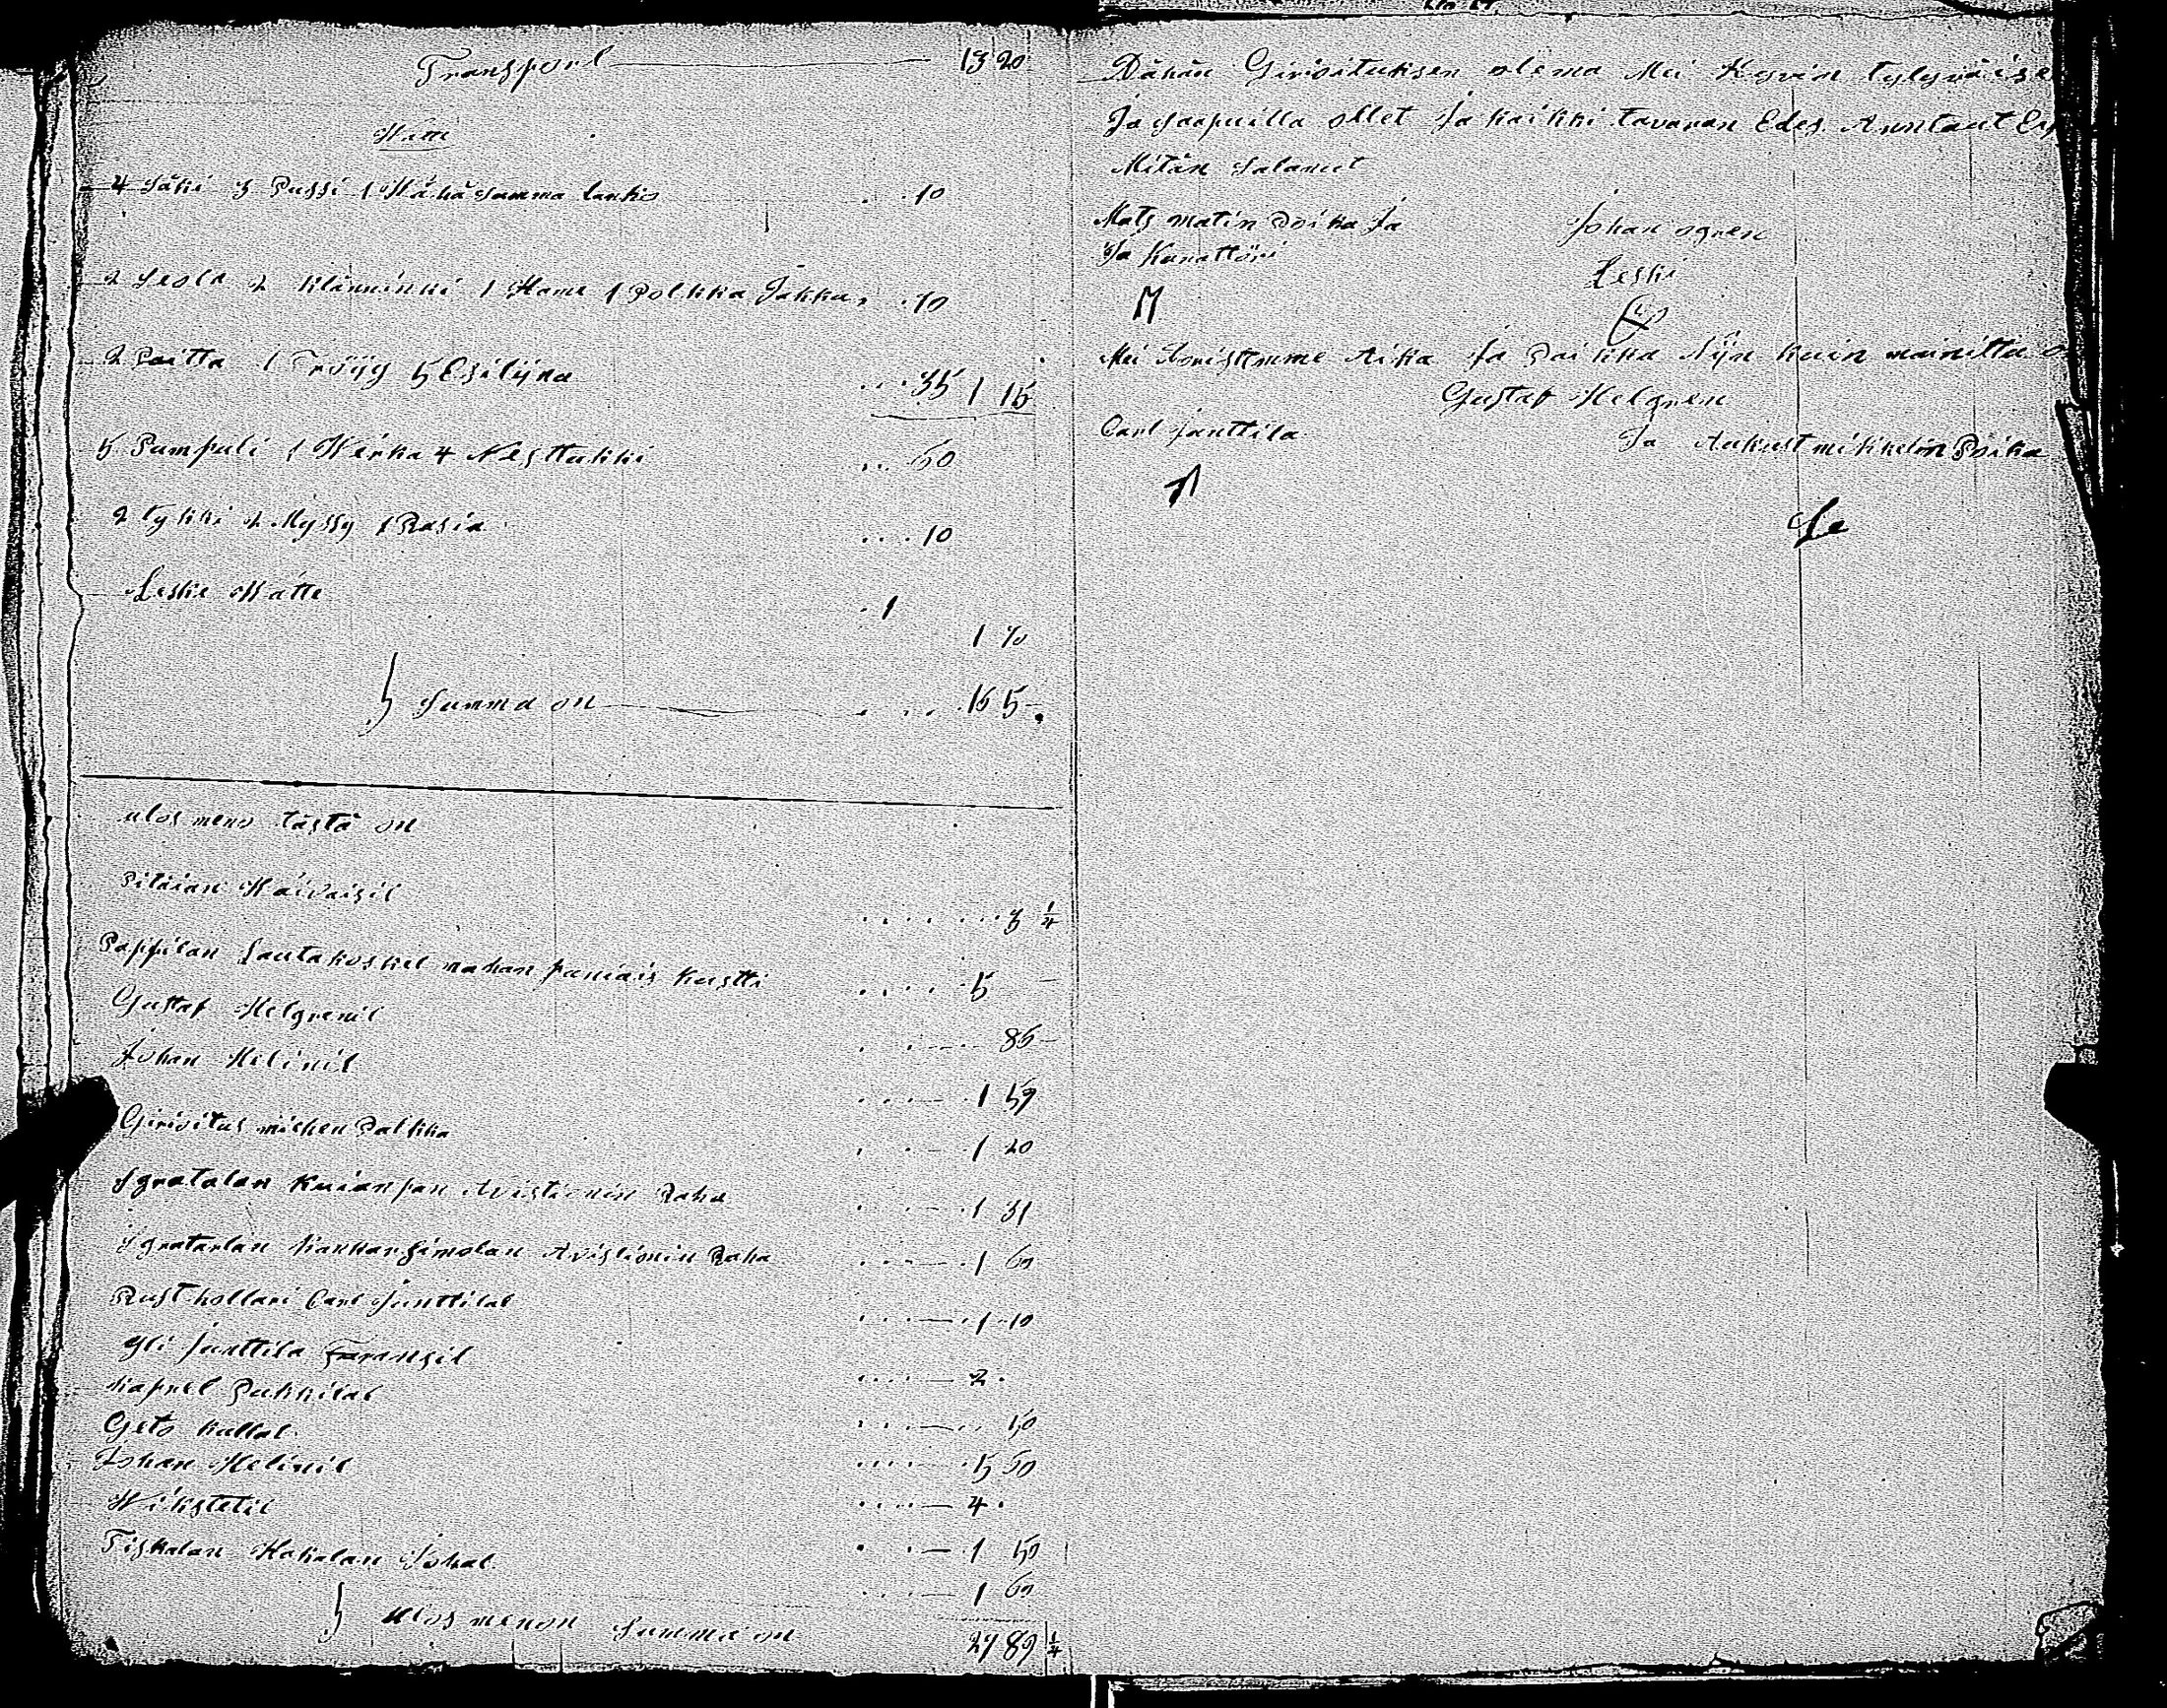 Transport 13 20
Waat
4 Säki 3 Pussi 1 Hähä Summa lanko . . 10
2 Seola 2 Klänninki 1 Hame 1 Polkka Jakku . . 70
2 Paitta 1 Tröijy 5 Esilijna . . . 35 1 15
5 Pumpuli 1 Werka 4 Nesttukki . . . 60
2 tykki 2 Myssy 1 Rasia . . . . 10
Leske Matte . 1
1 70
Summa on . . . . 16 5
ulos meno tästä on
Pitäian Waivaisil . . . . . . . . 3 1/4
Pappilan Lautakoskel mahan paniais Kustti . . . . . 5 —
Gustaf Helgrenil 86 —
Johan Helinil 1 59
Girioitus miehen Palkka 1 20
Sgratalan Kuianpan Avistionin Raha 1 31
Sgratarlan Kankarsimolan Avistionin Raha 1 60
Rusthollari Carl Junttilal 1 10
Yli Junttila Fransil 2 .
Kaprel Pukkilal 50
Geto kallal 15 60
Johan Helinil 4 .
Wikstetil 1 50
Tiskalan Hakalan Johal 1 60
Ulos menon Summa on 27 89 1/4
Dähän Girioituksen olema Mei Hyvin tylyväise
Ja Saapuilla ollet Ja kaikki tavaran Edes Anntaut
Mitän Salanut
Mats matin Poika Ja Johan ogren
Ja Kunattöri Leski
M
Mei Todistemme Aika Ja Paikka Nijn kuin mainittu
Gustaf Helgren
Carl Junttila Ja Aukust mikkelin Poika